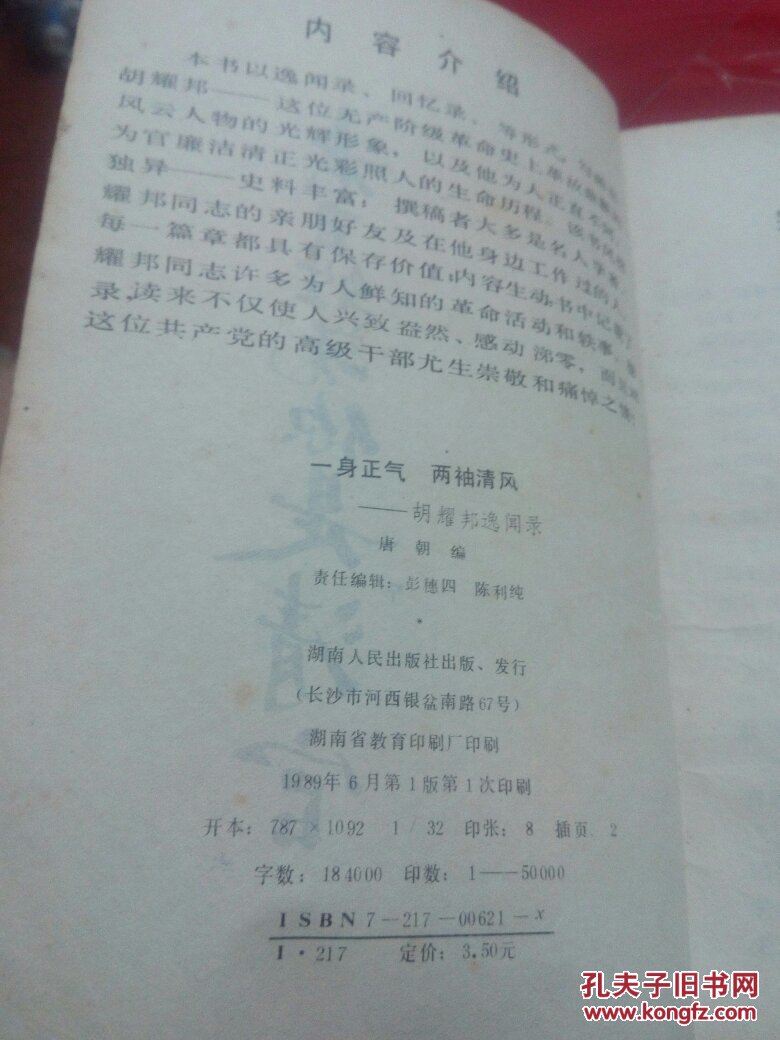 内容介绍
本书以逸闻录、回忆录、等形式,
胡耀邦——这位无产阶级革命史上
风云人物的光辉形象,以及他为人正直
为官廉洁清正光彩照人的生命历程。该书
独异——史料丰富;撰稿者大多是名人学者、
耀邦同志的亲朋好友及在他身边工作过的人
每一篇章都具有保存价值;内容生动书中记
耀邦同志许多为人鲜知的革命活动和轶事,
录,读来不仅使人兴致盎然、感动涕零,而
这位共产党的高级干部尤生崇敬和痛悼之情
一身正气 两袖清风
——胡耀邦逸闻录
唐朝编
责任编辑:彭穗四 陈利纯
*
湖南人民出版社出版、发行
(长沙市河西银盆南路67号)
湖南省教育印刷厂印刷
1989年6月第1版第1次印刷
开本:787×1092 1/32 印张:8 插页 2
字数:184000 印数:1——50000
ISBN7—217—00621—x
I·217 定价:3.50元
孔夫子旧书网
www.kongfz.com